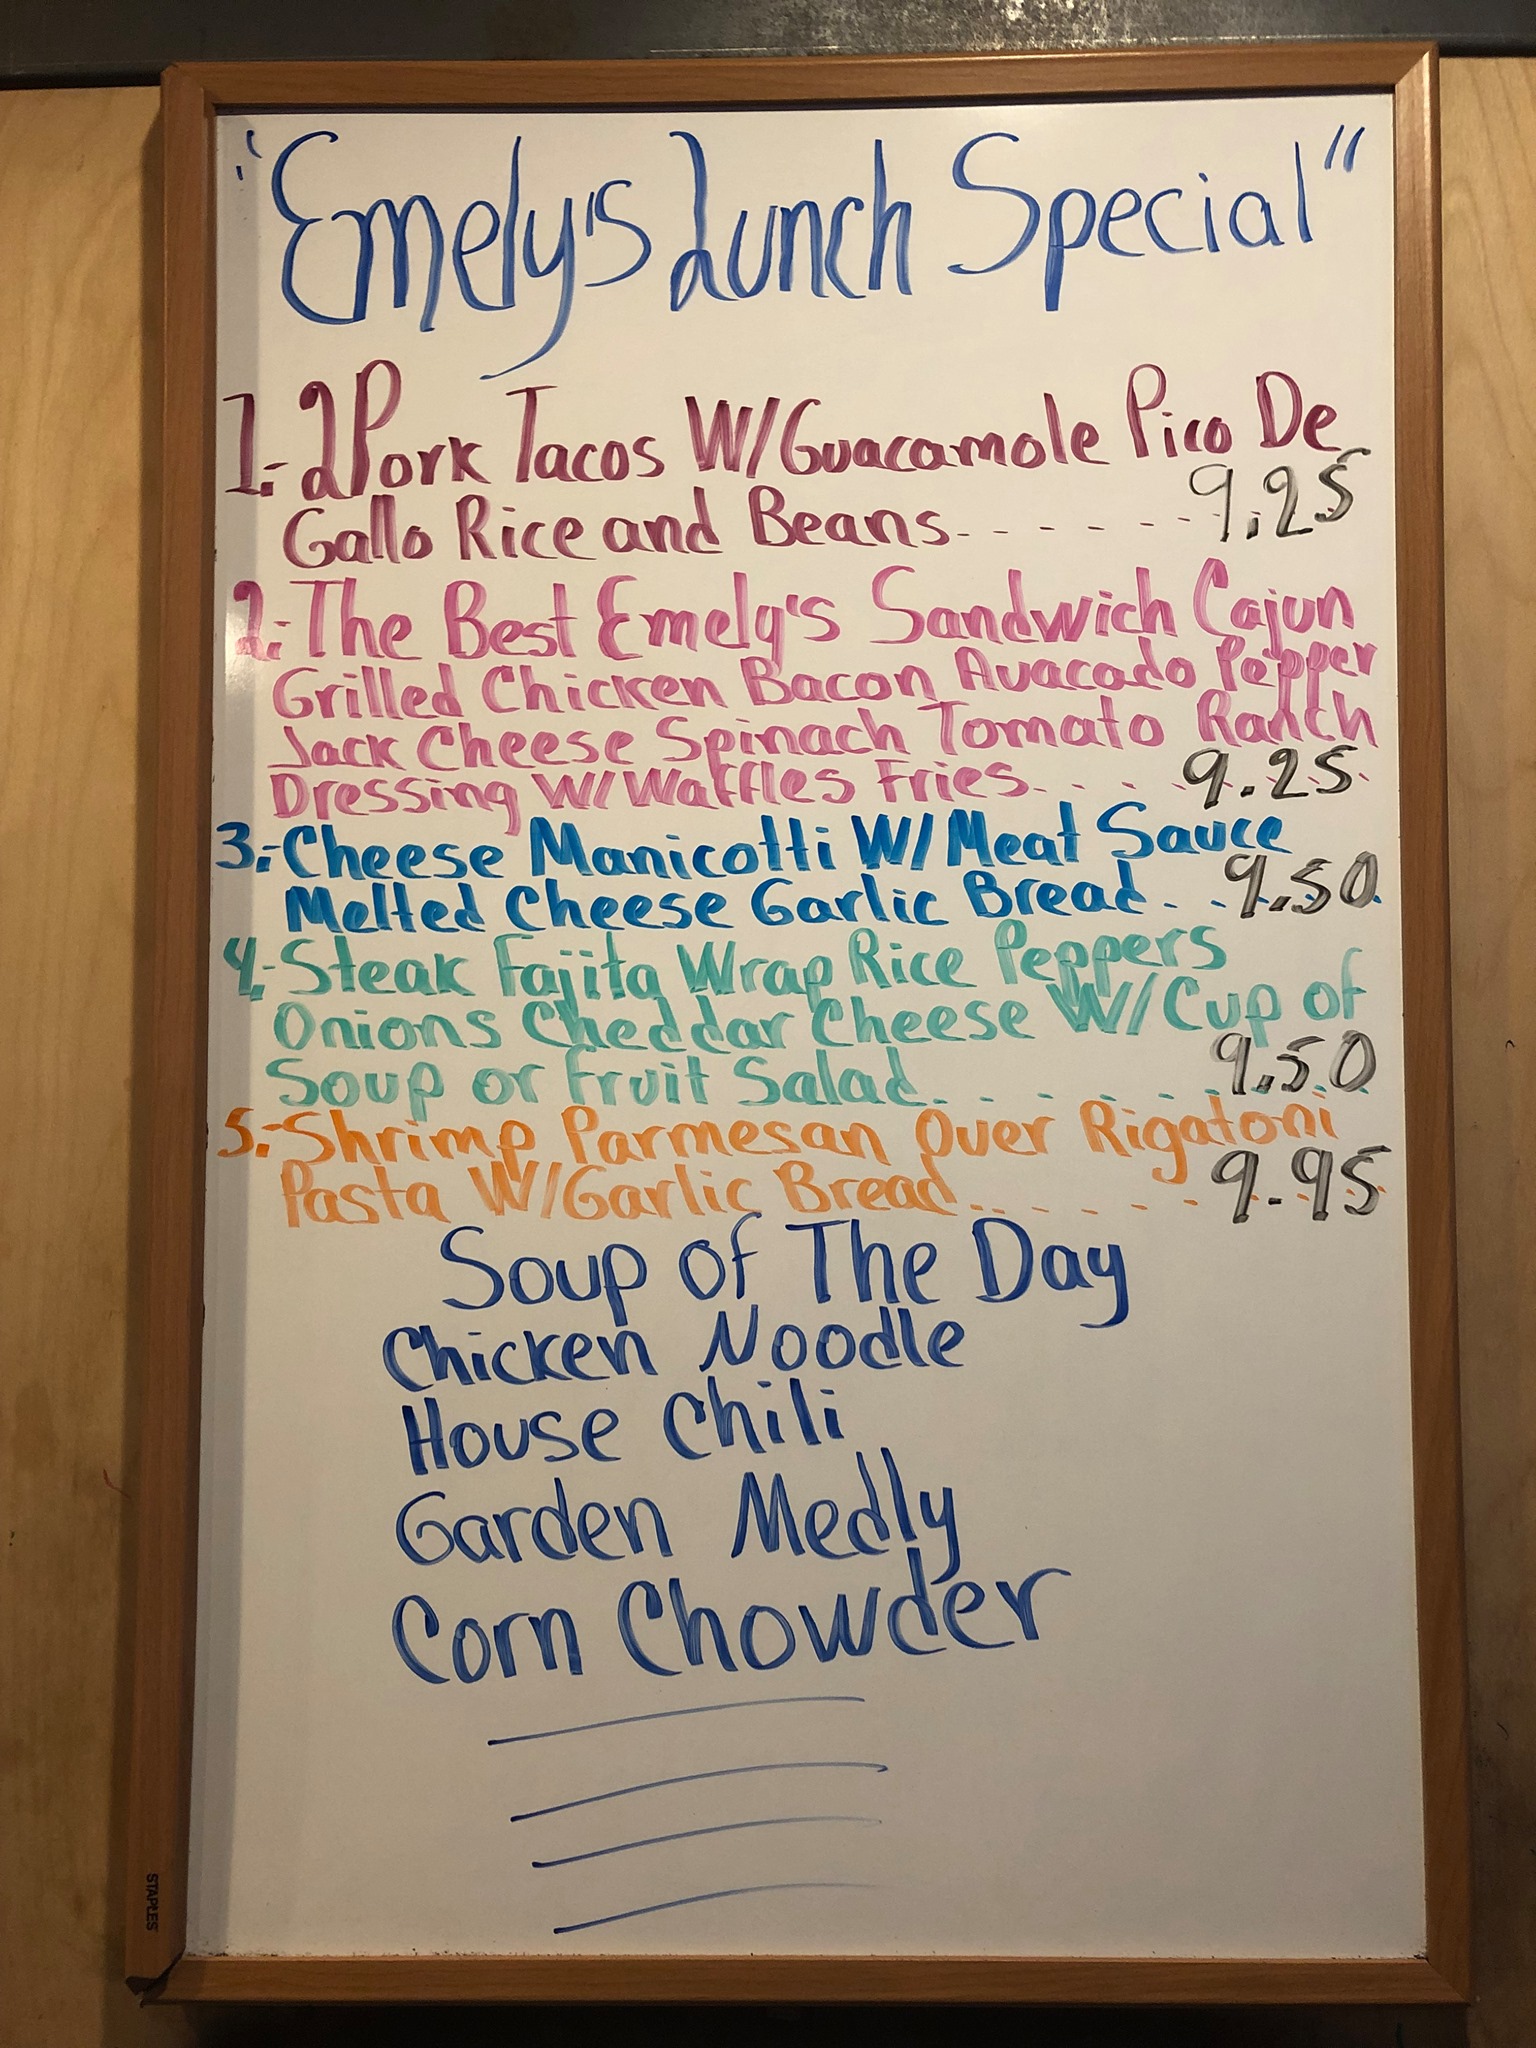 "Emely's Lunch Special"
1.- 2 Pork Tacos W/Guacamole Pico De
Gallo Rice and Beans. - - - - - - 9.25
2.- The Best Emely's Sandwich Cajun
Grilled Chicken Bacon Avacado Pepper
Jack Cheese Spinach Tomato Ranch
Dressing W/Waffles Fries. . . . . 9.25
3.- Cheese Manicotti W/Meat Sauce
Melted Cheese Garlic Bread. . . 9.50
4.- Steak Fajita Wrap Rice Peppers
Onions Cheddar Cheese W/Cup of
Soup or Fruit Salad. . . . . . . 9.50
5.- Shrimp Parmesan Over Rigatoni
Pasta W/Garlic Bread. . . - - - - 9.95
Soup Of The Day
Chicken Noodle
House Chili
Garden Medly
Corn Chowder
STAPLES